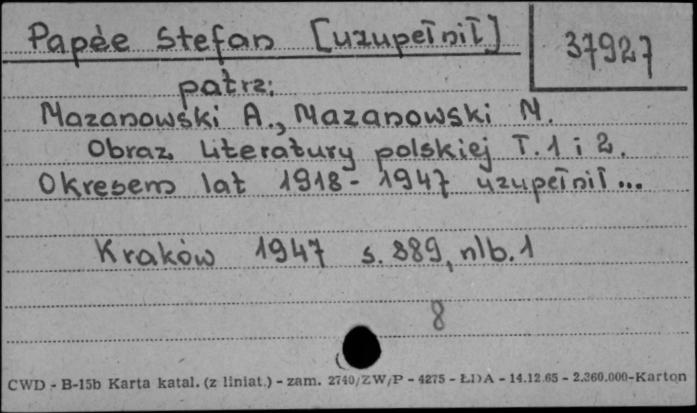 Papèe Stefan [uzupełnił]
37927
patrz:
Mazanowski A., Mazanowski M.
Obraz literatury polskiej T. 1 i 2.
Okresem lat 1918-1947 uzupełnił...
Kraków 1947 s. 889, nlb. 1
8
CWD - B-15b Karta katal. (z liniat.) - zam. 2740/ZW/P - 4275 - ŁDA - 14.12.65 - 2.360.000-Karton